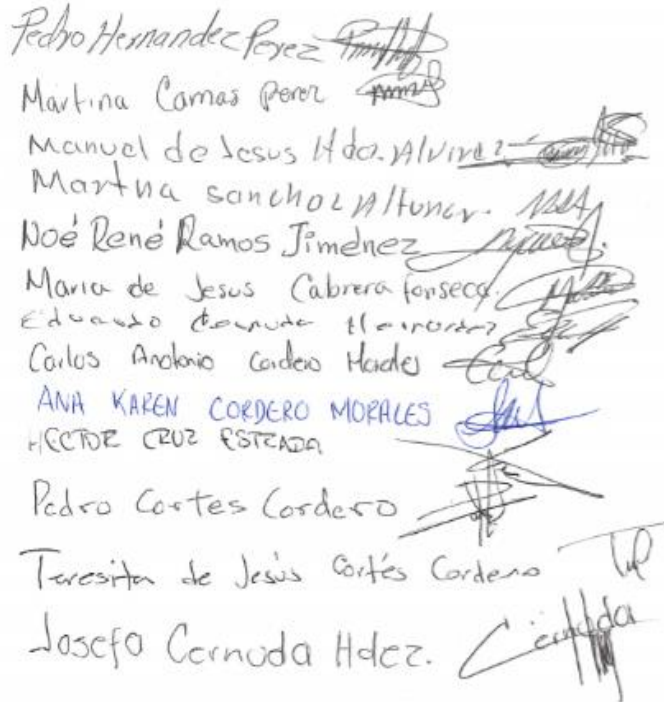 Pedro Hernandez Perez
Martina Camas Perez
Manuel de Jesus Hdo. Alvirez
Martha sanchoz Altunar.
Noé René Ramos Jiménez
Maria de Jesus Cabrera fonseca.
Eduardo Cernuda Hernandez
Carlos Anotonio Cordero Morales
ANA KAREN CORDERO MORALES
HECTOR CRUZ ESTRADA
Pedro Cortes Cordero
Teresita de Jesús Cortés Cordero
Josefa Cernuda Hdez. Cernuda